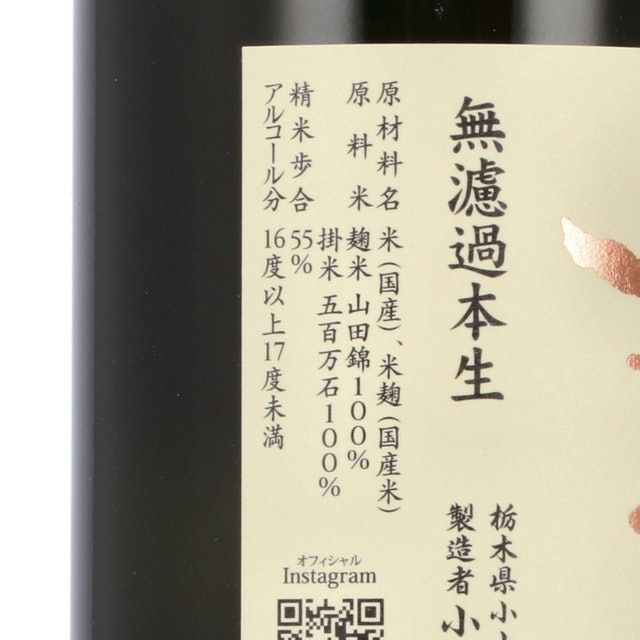 無濾過本生
原材料名 米(国産)、米麹(国産米)
原料米 麹米 山田錦100%
掛米 五百万石100%
精米歩合 55%
アルコール分 16度以上17度未満
栃木県小
製造者 小
オフィシャル
Instagram